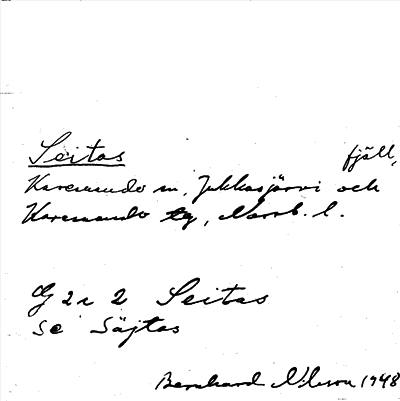 Seitas fjäll,
Karesuando sn, Jukkasjärvi och
Karesuando tg, Norrb. l.
G 2 r 2 Seitas
se Säjtas
Bernhard Nilsson 1948